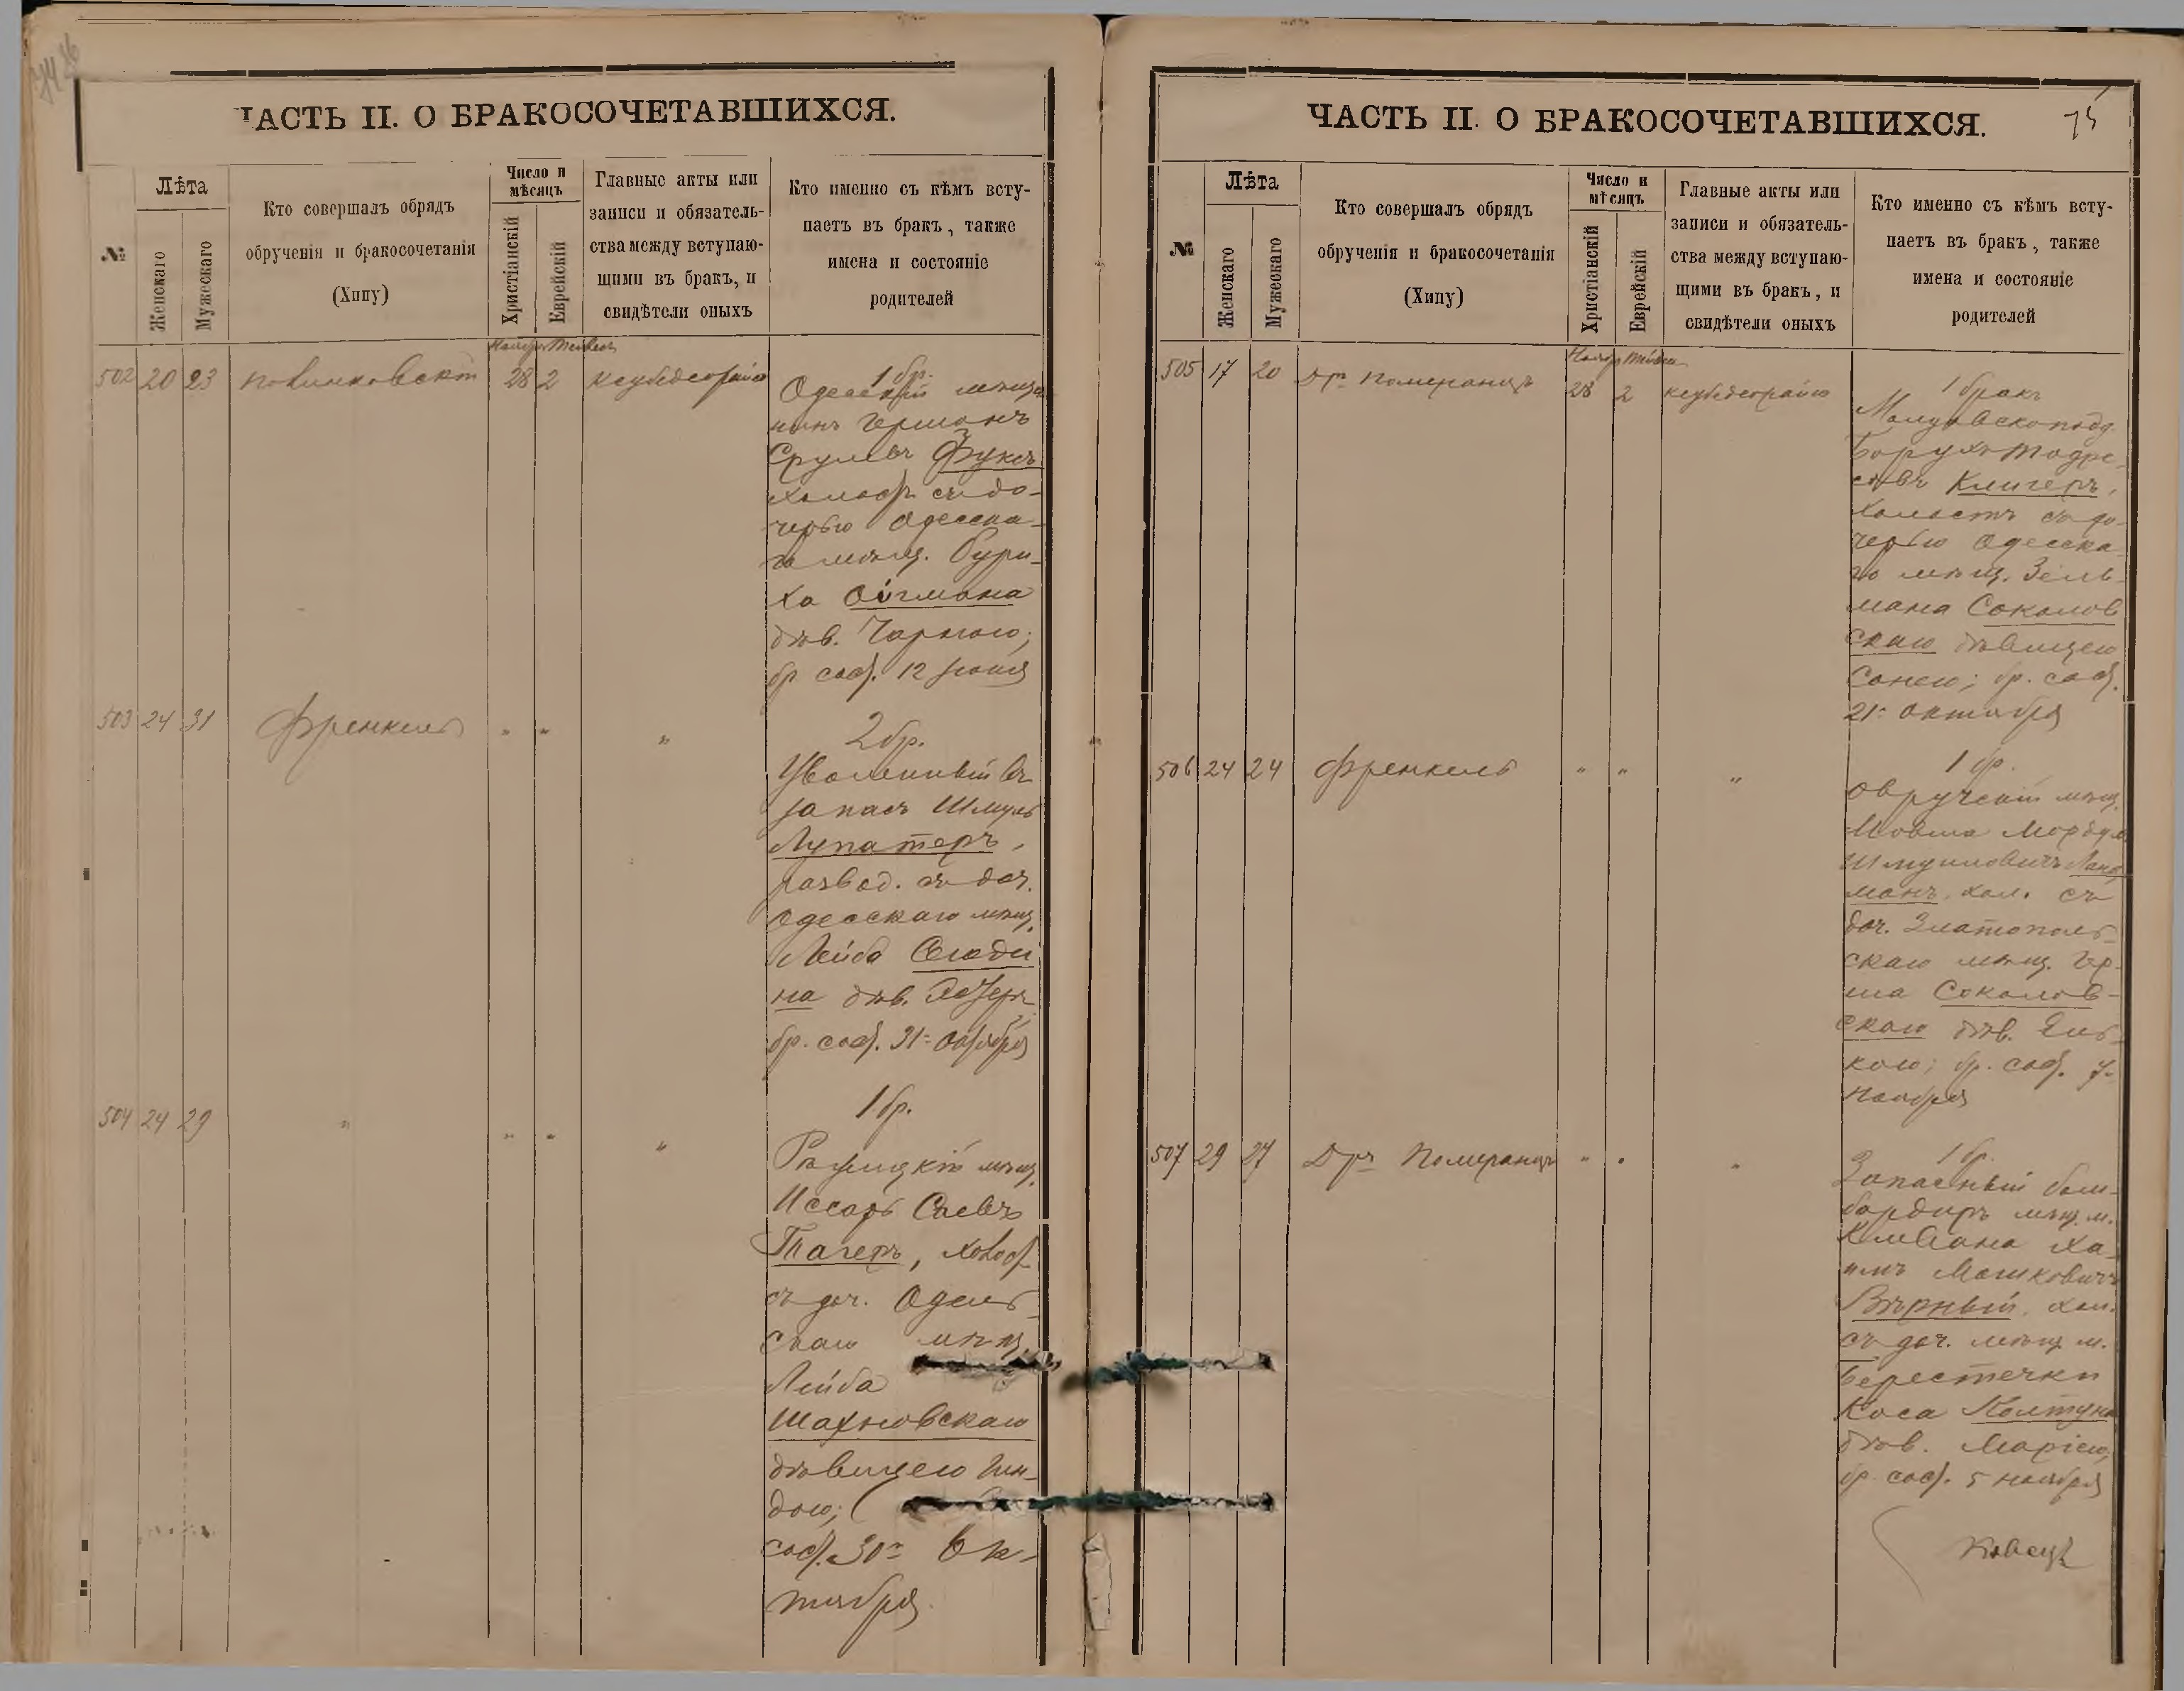 ЧАСТЬ II. О БРАКОСОЧЕТАВШИХСЯ.
№
Лѣта
Женскаго
Мужескаго
Кто совершалъ обрядъ
обрученія и бракосочетанія
(Хипу)
Число и
мѣсяцъ
Христіанскій
Еврейскій
Главные акты или
записи и обязатель-
ства между вступаю-
щими въ бракъ, и
свидѣтели оныхъ
Кто именно съ кѣмъ всту-
паетъ въ бракъ, также
имена и состояніе
родителей
502 20 23
28 2
1 бр.
Одесскій мѣща
нинъ Германъ
Срулевъ Фуксъ
холост. съ до-
черью Одесска-
го мѣщ. Бури-
ха
дѣв. Чарною;
бр. сов. 12
503 24 31 Френкель " " "
2 бр.
Уволенный въ
запасъ Шмуль
Лупатеръ,
развод. съ доч.
Одесскаго мѣщ.
Лейба
на дѣв.
бр. сов. 31 октября
504 24 29 " " " "
1 бр.
мѣщ.
Тагеръ, холост
съ доч. Одес-
скаго мѣщ.
Лейба
Шахновскаго
дѣвицею Гин-
дою;
сов. 30 Ок-
тября.
ЧАСТЬ II. О БРАКОСОЧЕТАВШИХСЯ. 75
№
Лѣта
Женскаго
Мужескаго
Кто совершалъ обрядъ
обрученія и бракосочетанія
(Хипу)
Число и
мѣсяцъ
Христіанскій
Еврейскій
Главные акты или
записи и обязатель-
ства между вступаю-
щими въ бракъ, и
свидѣтели оныхъ
Кто именно съ кѣмъ всту-
паетъ въ бракъ, также
имена и состояніе
родителей
505 17 20 Дръ Померанцъ
28 2
1 бракъ
Борухъ Тодре-
совъ Клигеръ,
холостъ съ до-
черью Одесска-
го мѣщ. Зель-
мана Соколов
скаго дѣвицею
Сонею; бр. сов.
21 октября
506 24 24 Френкель " " "
1 бр.
Овручскій мѣщ.
Мовша
Шмуиловичъ
манъ, хол. съ
доч. Златополь-
скаго мѣщ. Гер-
ша Соколов-
скаго дѣв.
кою; бр. сов. 7
Ноября
507 29 27 Дръ Померанцъ " " "
1 бр.
Запасный бом-
бардиръ мѣщ. м.
Ха
имъ Мошковичъ
Вѣрный, хол.
съ доч. мѣщ. м.
Берестечки
Коса Колтуна
дѣв. Маріею,
бр. сов. 5 ноября